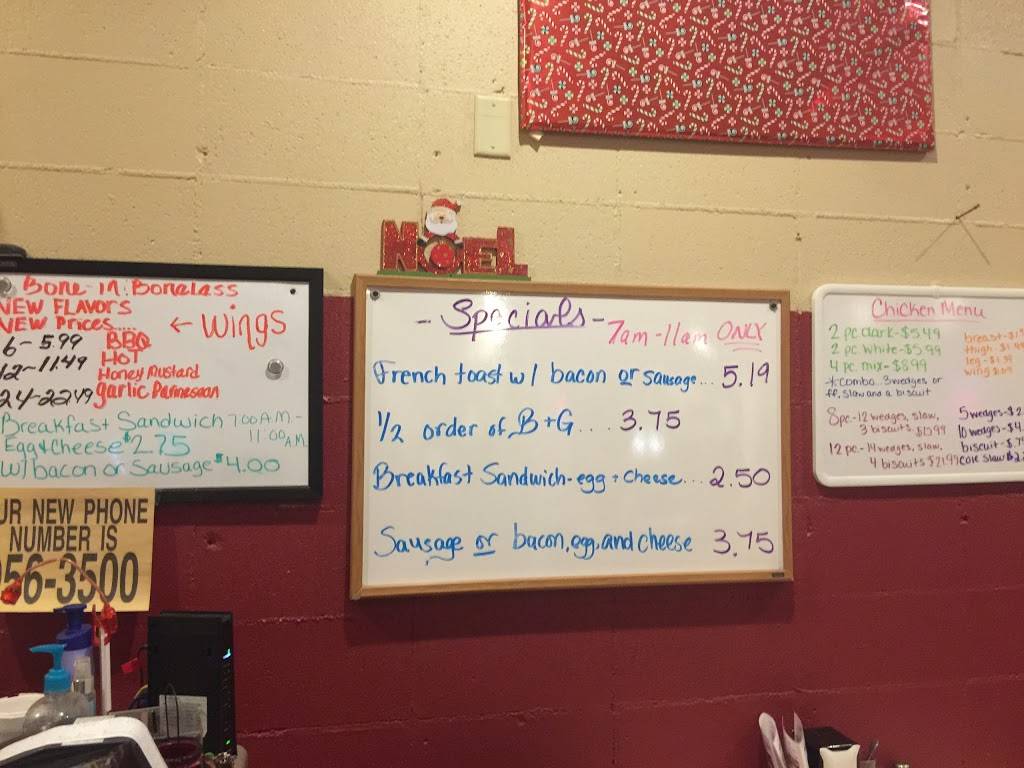 NOEL
Bone-in. Boneless
NEW FLAVORS
NEW Prices....
← wings
6 - 5.99 BBQ
12 - 11.49 HOT
Honey Mustard
24 - 22.49 garlic Parmesean
Breakfast Sandwich 7:00 A.M. -
11:00 A.M.
Egg & Cheese $2.75
w/ bacon or Sausage $4.00
UR NEW PHONE
NUMBER IS
56-3500
- Specials -
7am - 11am ONLY
French toast w/ bacon or sausage... 5.19
1/2 order of B+G.... 3.75
Breakfast Sandwich - egg + cheese... 2.50
Sausage or bacon, egg, and cheese 3.75
Chicken Menu
2 pc dark - $5.49
2 pc white - $5.99
4 pc. mix - $8.99
*combo.. 3 wedges or
ff, slaw and a biscuit
breast - $
thigh - $
leg - $
wing
8pc. - 12 wedges, slaw,
3 biscuits
12 pc. - 14 wedges, slaw,
4 biscuits $21.99
5 wedges - $2.
10 wedges - $4.
biscuit - $.7
cole slaw $2